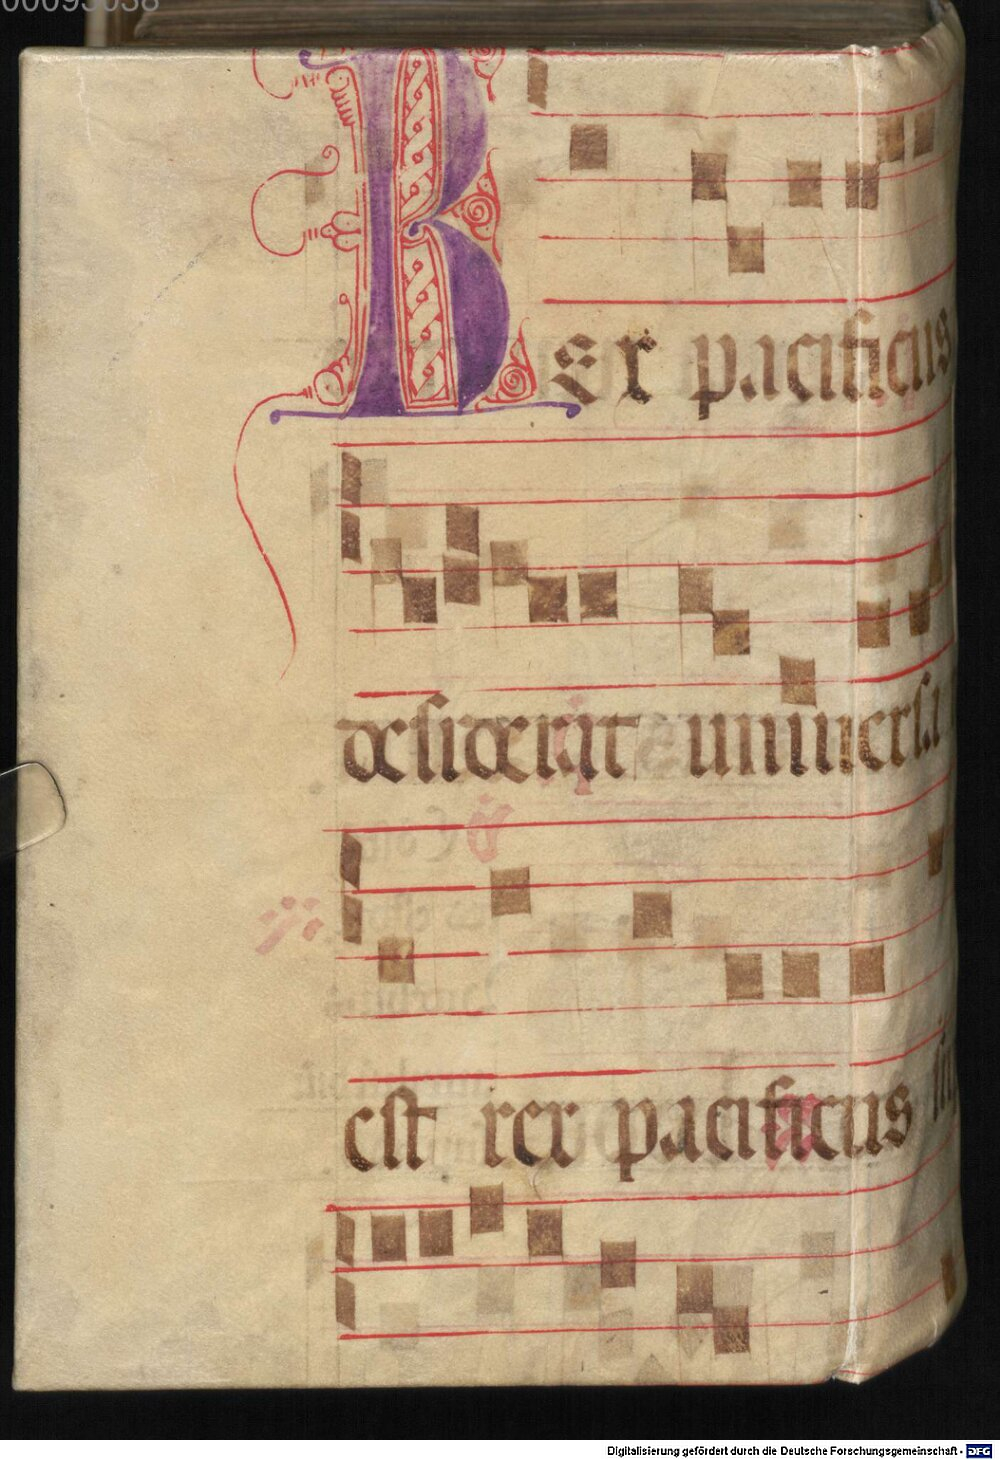 00093038
Rex pacificus
desiderat universa
est rex pacificus su
Digitalisierung gefördert durch die Deutsche Forschungsgemeinschaft - DFG